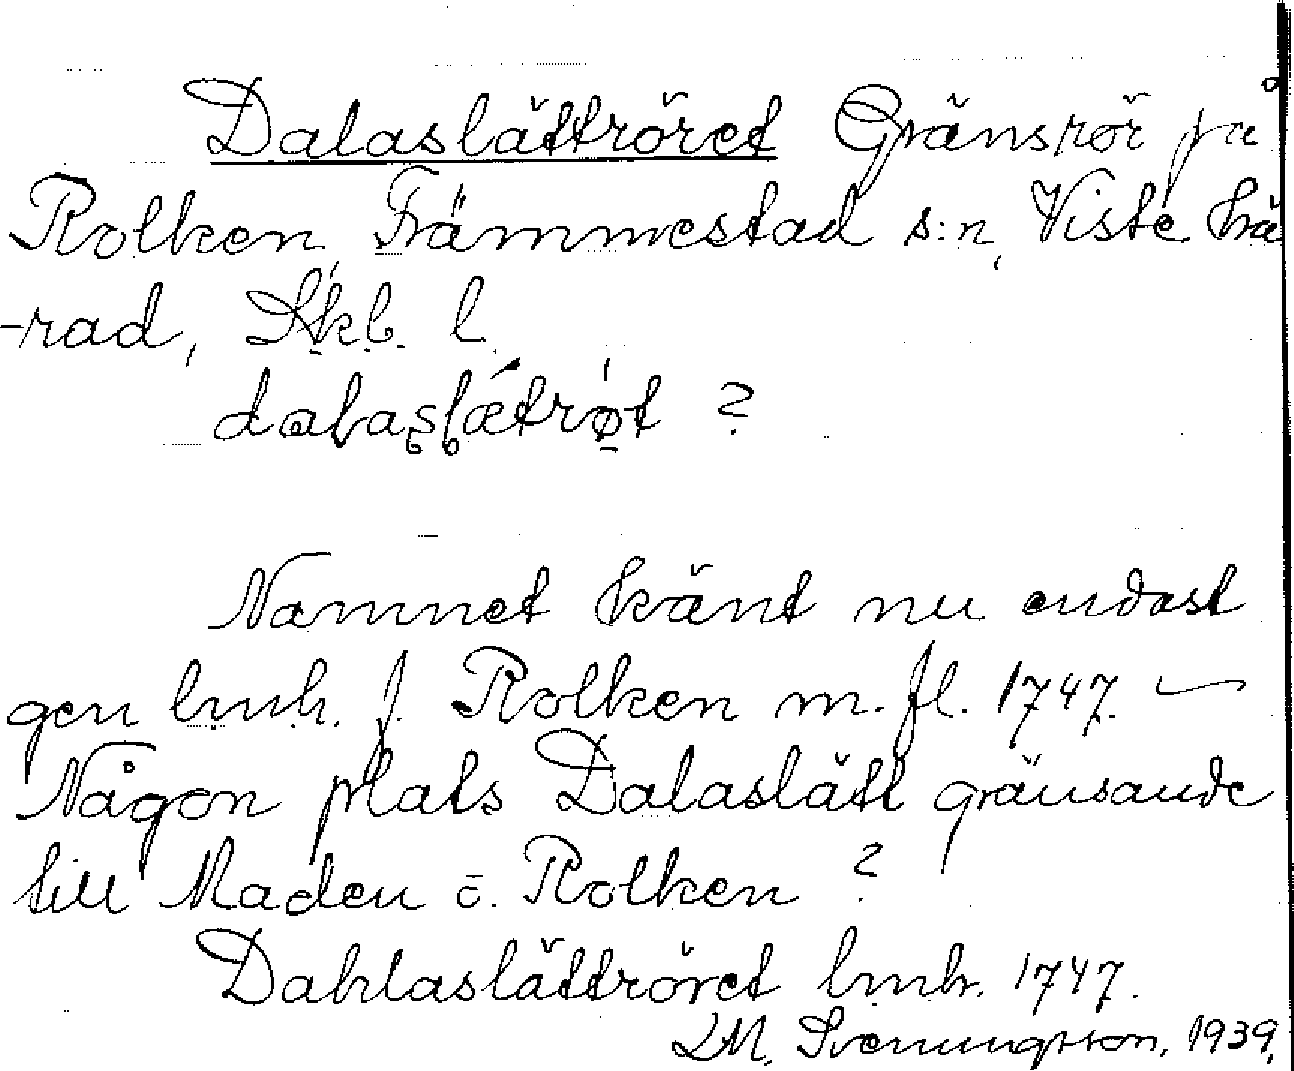 Dalaslättröret Gränsrör på
Rolken, Främmestad s:n, Viste hä
-rad, Skb. l.
dalaslætrøt ?
Namnet känt nu endast
gen lmh. f. Rolken m. fl. 1747. —
Någon plats Dalaslätt gränsande
till Maden ö. Rolken ?
Dahlaslättröret lmh. 1747.
LM. Svenungsson, 1939.